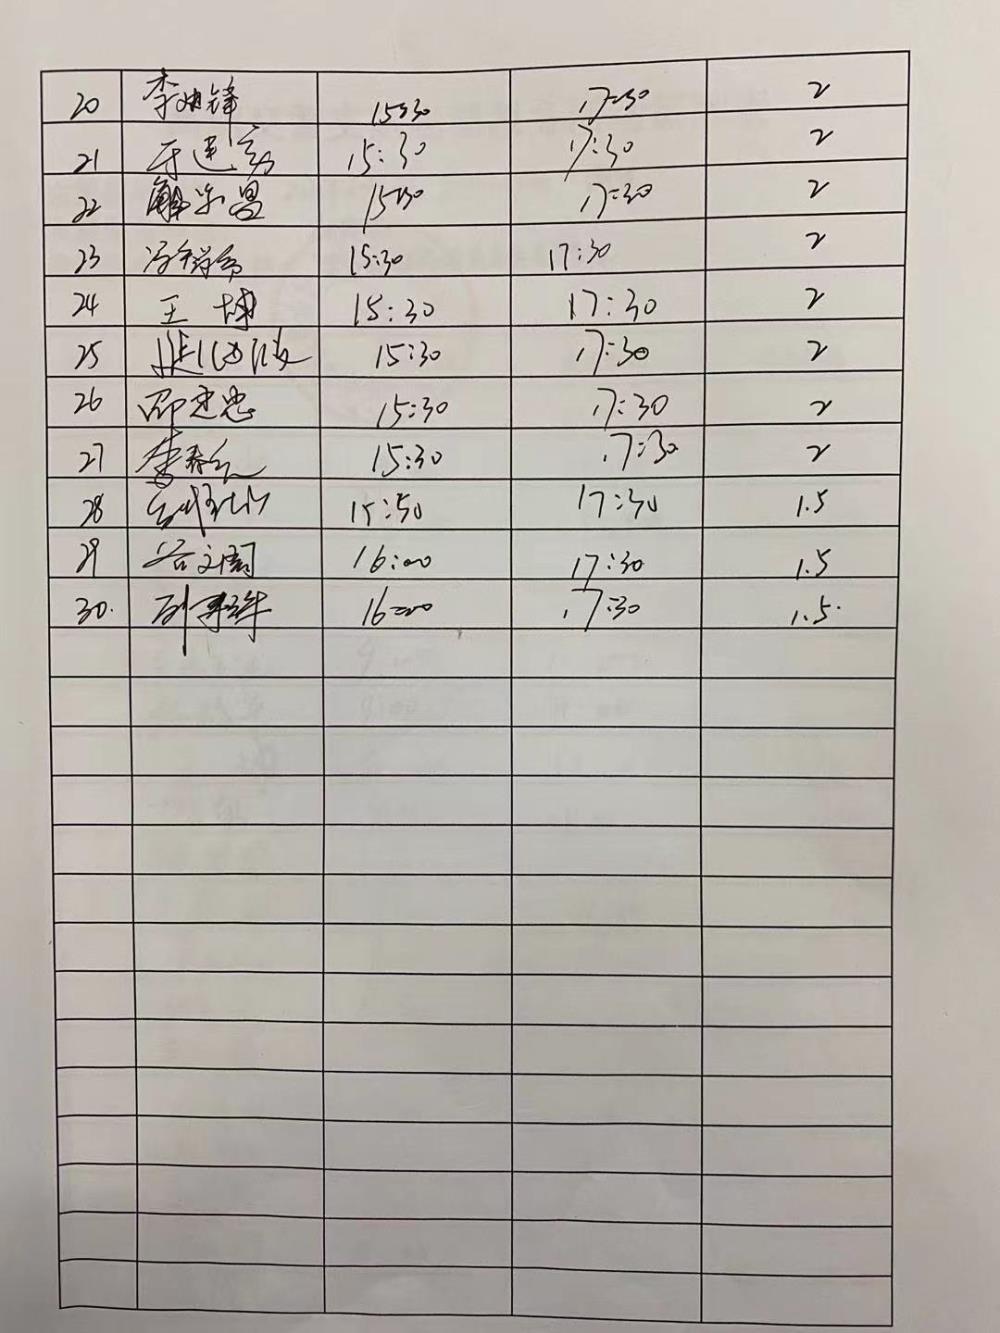 20 李 锋 15:30 17:30 2
21 于建 15:30 17:30 2
22 解乐昌 15:30 17:30 2
23 冯 15:30 17:30 2
24 王 博 15:30 17:30 2
25 15:30 17:30 2
26 邵建忠 15:30 17:30 2
27 李春 15:30 17:30 2
28 15:50 17:30 1.5
29 谷文阁 16:00 17:30 1.5
30. 16:00 17:30 1.5.